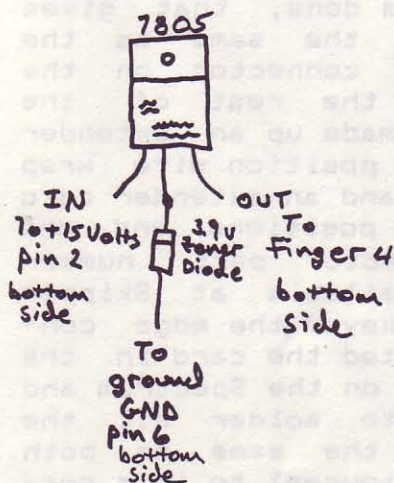 7805
IN
To +15 Volts
pin 2
bottom
side
zener
Diode
OUT
To
Finger 4
bottom
side
To
ground
GND
pin 6
bottom
side